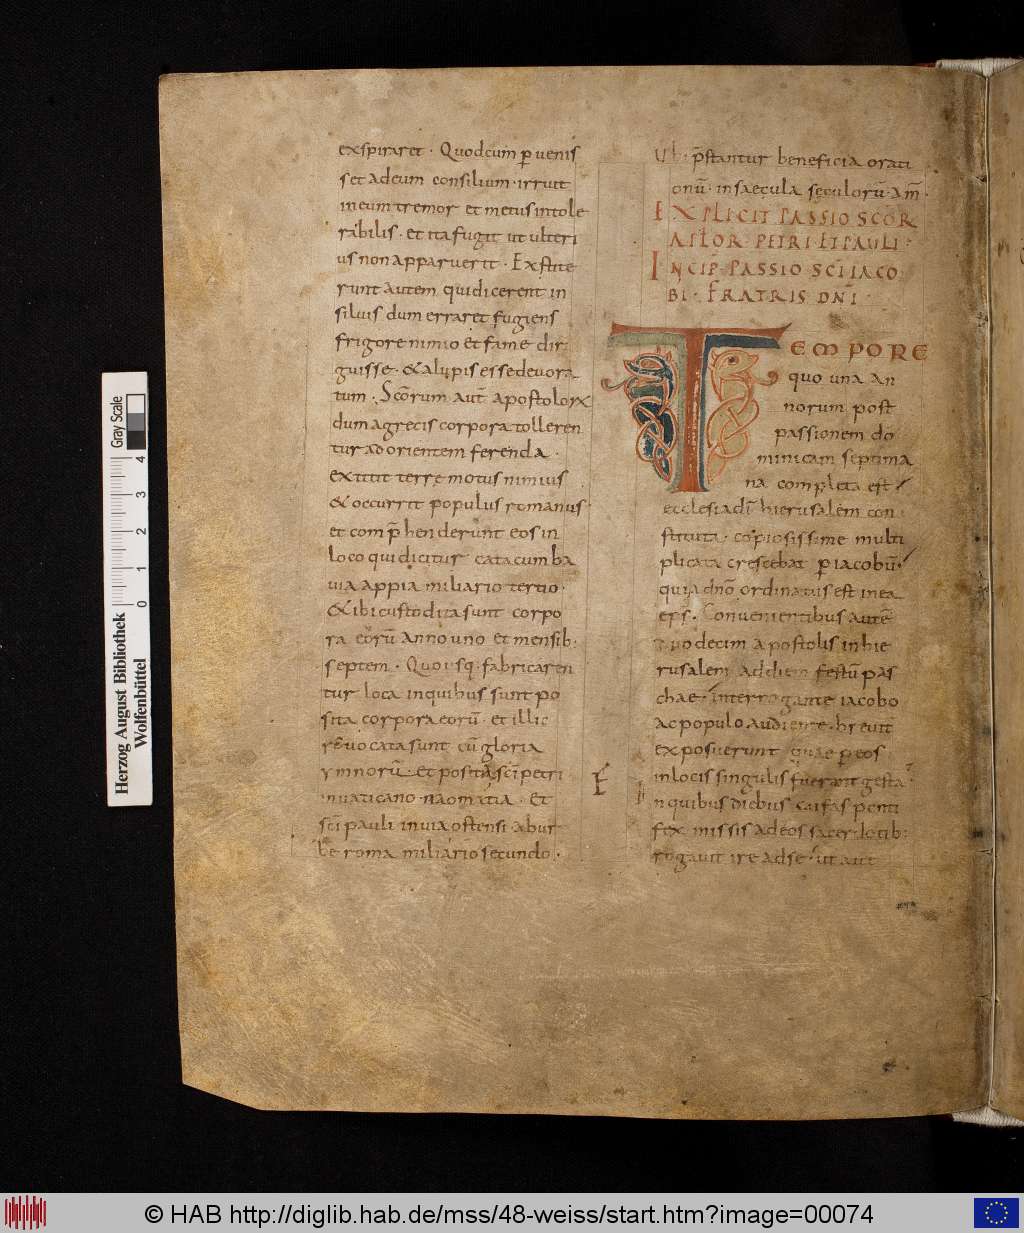 exspiraret · Quodcum p̄uenis
set adeum consilium · irruit
ineum tremor et metus intole
rabilis · et ita fugit ut ulteri
us non apparuerit · Exstite
runt autem qui dicerent in
siluis dum erraret fugiens
frigore nimio et fame dir
guisse · & alupis eissedeuora
tum · Sc̄orum aut̄ apostolorx
dum agrecis corpora tolleren
tur ad orientem ferenda ·
extitit terre motus nimius
& occurrit populus romanus ·
et comp̄henderunt eos in
loco qui dicitur catacumba
uia appia miliario tertio ·
& ibi custodita sunt corpo
ra eorū anno uno et mensib·
septem · Quousq· fabricaren
tur loca inquibus sunt po
sita corpora eorū · et illic
reuocata sunt cū gloria
ymnorū · et posita sc̄i petri
inuaticano naomatia · Et
sc̄i pauli inuia ostensi abur
be roma miliario secundo ·
Ub· p̄stantur beneficia orati
onū · insaecula seculorū · am̄ ·
EXPLICIT PASSIO SCOR
APLOR · PETRI · ET PAULI ·
INCIP̄ · PASSIO SC̄I IACO
BI · FRATRIS DN̄I ·
TEMPORE
quo una an
norum post
passionem do
minicam septima
na completa est
ecclesia dī hierusalem con
stituta · copiosissime multi
plicata crescebat p̄ iacobū ·
quia dn̄o ordinatus est inea
ep̄s · Conuenientibus autē
duodecim apostolis inhie
rusalem ad diem festū pas
chae · interrogante iacobo
ac populo audiente · breuit̄
exposuerunt quae p̄ eos
inlocis singulis fuerant gesta ·
Inquibus diebus caifas ponti
fex missis adeos sacerdotib·
rogauit ire adse · ut aut
Gray Scale
4
3
2
1
0
Herzog August Bibliothek
Wolfenbüttel
© HAB http://diglib.hab.de/mss/48-weiss/start.htm?image=00074